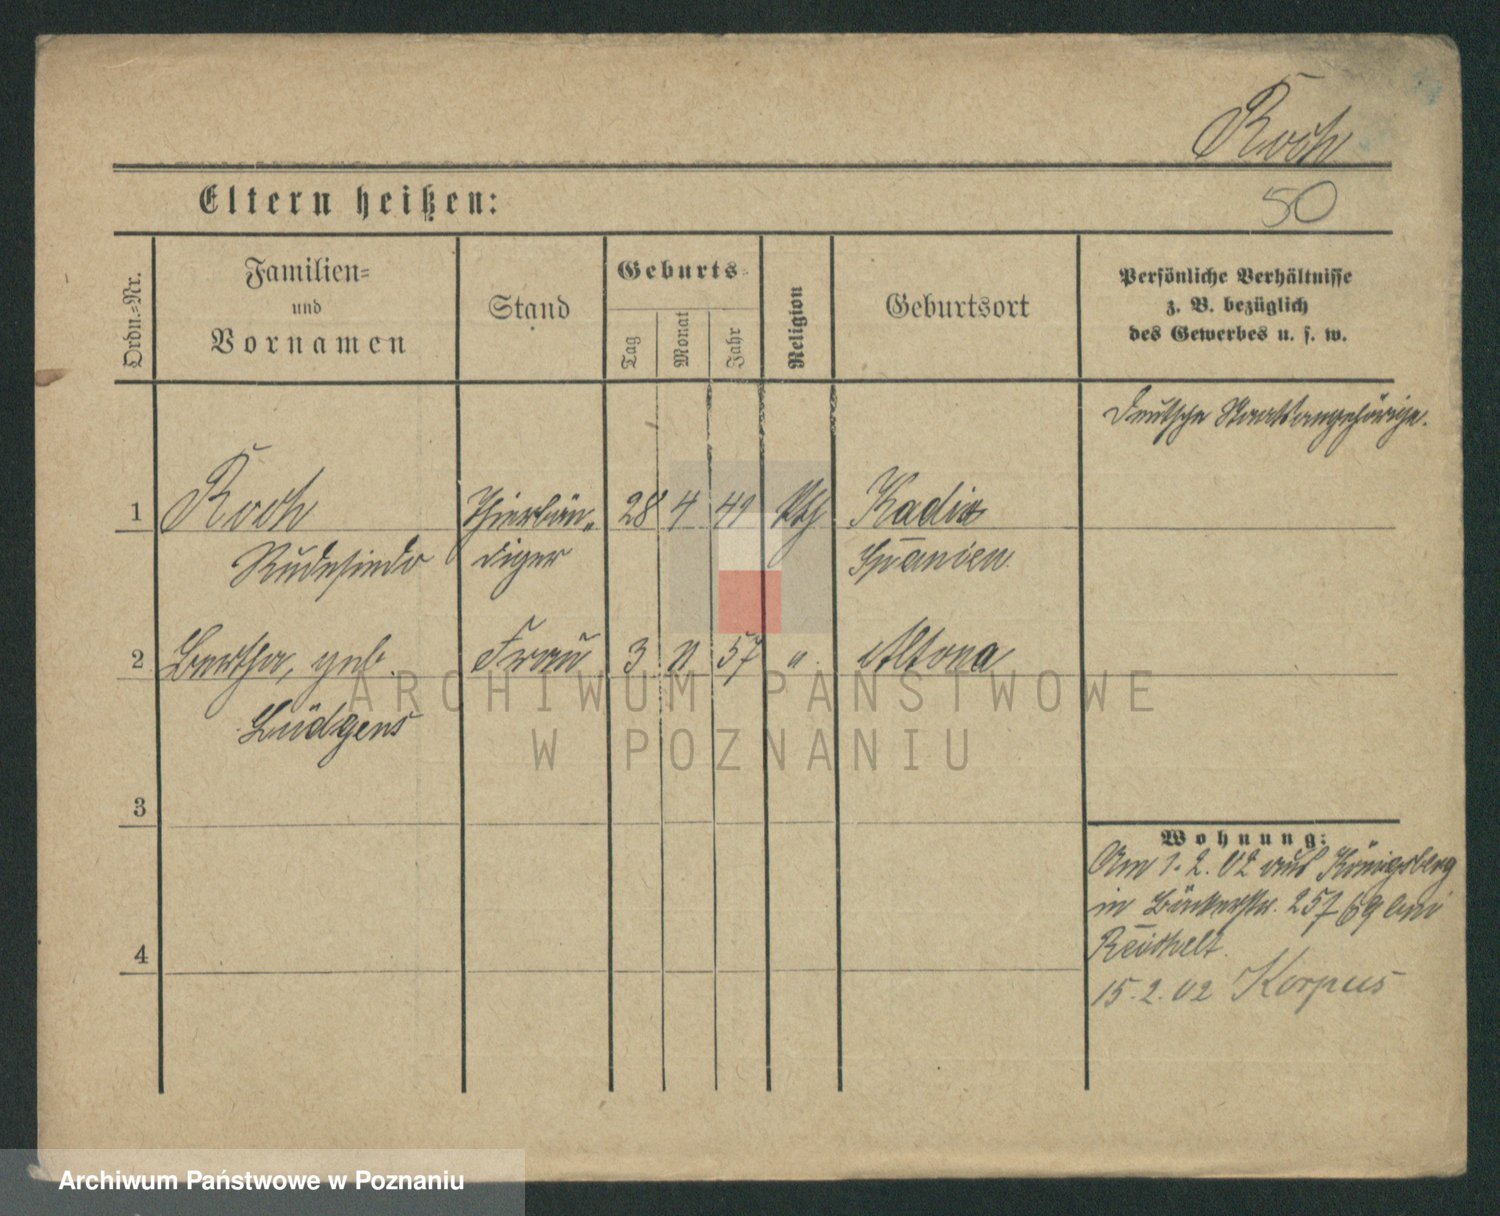 Roche
Eltern heißen:
50
Ordn.=Nr.
Familien=
und
Vornamen
Stand
Geburts=
Tag
Monat
Jahr
Religion
Geburtsort
Persönliche Verhältnisse
z. B. bezüglich
des Gewerbes u. s. w.
Deutsche Staatsangehörige.
1 Roche Thierbän„ 28 4 49 Kadix
Rudesindo diger Spanien.
2 Bertha, geb. Frau 3 11 57 " Altona
Lüdgens
ARCHIWUM PAŃSTWOWE
W POZNANIU
3
Wohnung:
Am 1.2.02 aus Königsberg
in Bäckerstr. 257/69 bei
4
15.2.02 Korpus
Archiwum Państwowe w Poznaniu